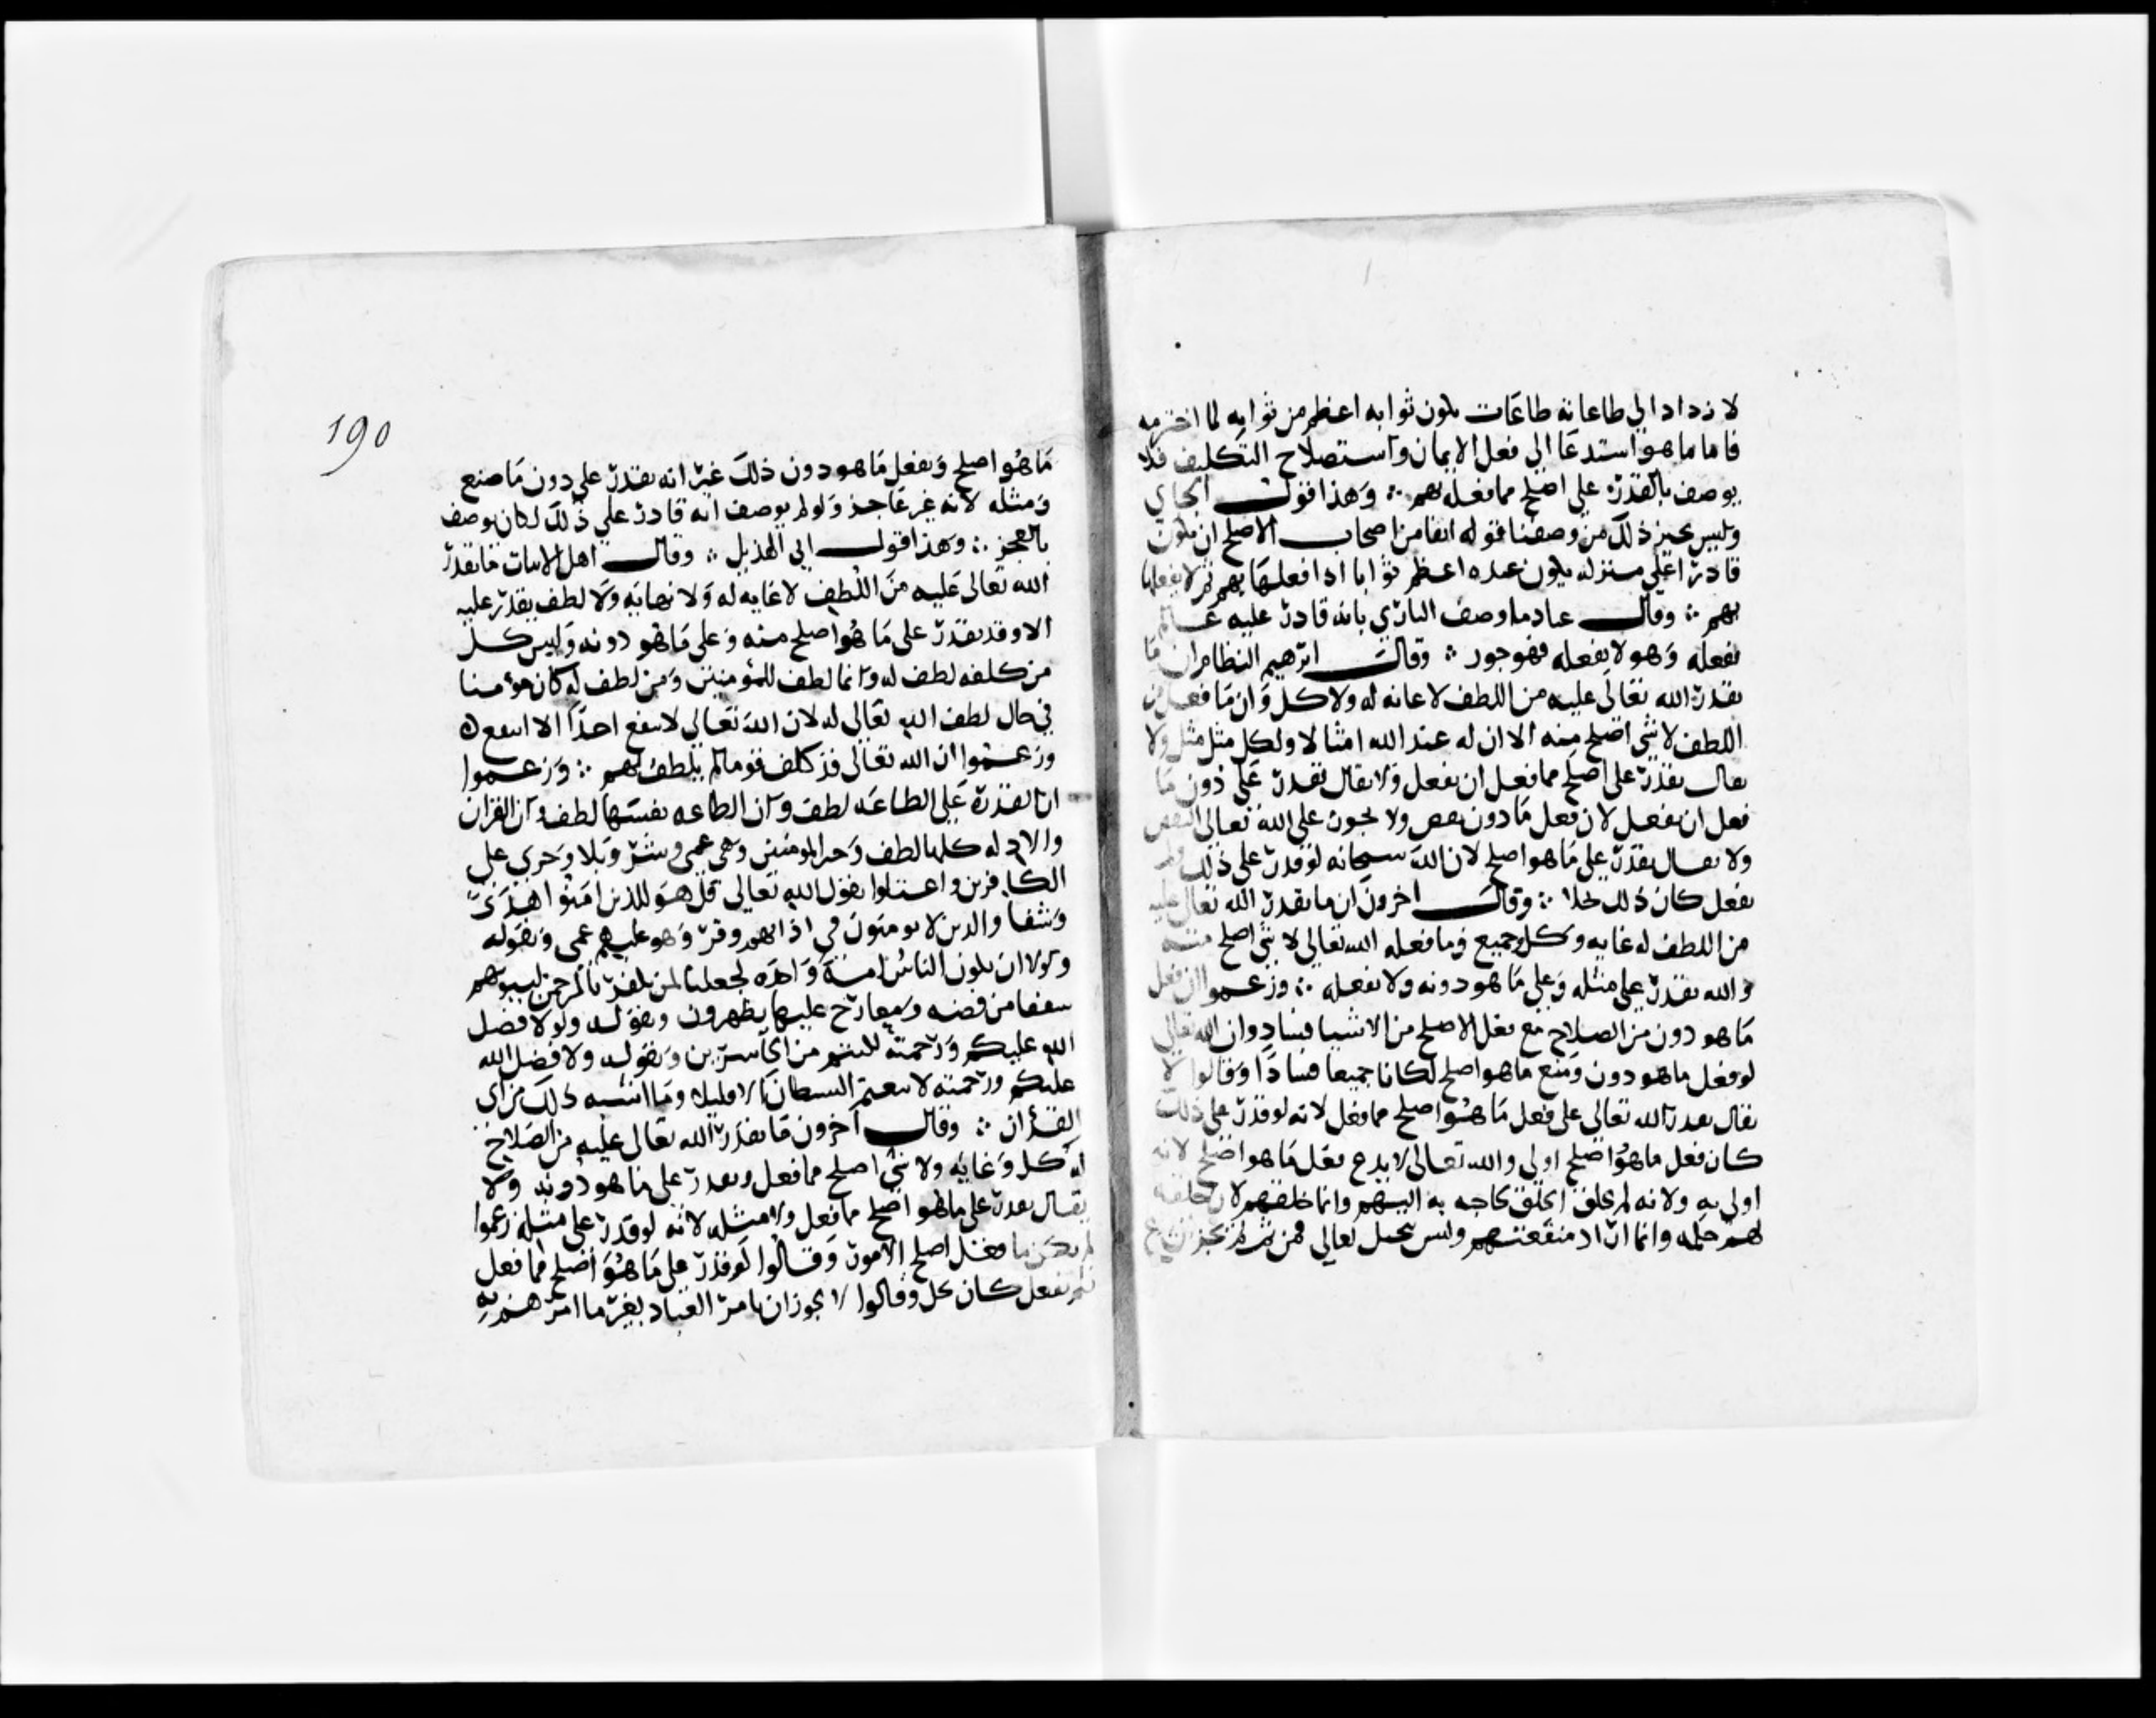 لازداد الي طاعاته طاعات يكون ثوابه اعظم من ثوابه لما اخترمه
فاما ما هو استدعا الى فعل الايمان واستصلاح التكليف فلا
يوصف بالقدرة على اصلح مما فعله بهم ؞ وهذا قول الجباي
وليس يجيز ذلك من وصفنا قوله انفا من اصحاب الاصلح ان يكون
قادرا على منزله يكون عبده اعظم ثوابا اذا فعلها بهم ثم لا يفعلها
بهم ؞ وقال عباد ما وصف الباري بانه قادر عليه عالم
بفعله وهو لا يفعله فهو جور ؞ وقال ابرهيم النظام ان ما
يقدر الله تعالى عليه من اللطف لا غايه له ولا كل وان ما فعل من
اللطف لا شي اصلح منه الا ان له عند الله امثالا ولكل مثل مثل ولا
يقال يقدر على اصلح مما فعل ان يفعل ولا يقال يقدر على دون ما
فعل ان يفعل لان فعل ما دون نقص ولا يجوز على الله تعالى النقص
ولا يقال يقدر على ما هو اصلح لان الله سبحانه لو قدر على ذلك ولم
يفعل كان ذلك بخلا ؞ وقال اخرون ان ما يقدر الله تعالى عليه
من اللطف له غايه وكل وجميع وما فعله الله تعالى لا شي اصلح منه
والله يقدر على مثله وعلى ما هو دونه ولا يفعله ؞ وزعموا ان فعل
ما هو دون من الصلاح مع فعل الاصلح من الاشيا فساد وان الله تعالى
لو فعل ما هو دون ومنع ما هو اصلح لكانا جميعا فسادا وقالوا لا
يقال يقدر الله تعالى على فعل ما هو اصلح مما فعل لانه لو قدر على ذلك
كان فعل ما هو اصلح اولى والله تعالى لا يدع فعل ما هو اصلح لانه
اولى به ولانه لم يخلق الخلق لحاجه به اليهم وانما خلقهم لان خلقه
لهم حكمه وانما اراد منفعتهم وليس ببخيل تعالى فمن ثم لم يجز ان يدع
190
ما هو اصلح ويفعل ما هو دون ذلك غير انه يقدر على دون ما صنع
ومثله لانه غير عاجز ولو لم يوصف انه قادر على ذلك لكان يوصف
بالعجز ؞ وهذا قول ابي الهذيل ؞ وقال اهل الاثبات ما يقدر
الله تعالى عليه من اللطف لا غايه له ولا نهايه ولا لطف يقدر عليه
الا وقد يقدر على ما هو اصلح منه وعلى ما هو دونه وليس كل
من كلفه لطف له وانما لطف للمؤمنين ومن لطف له كان مؤمنا
في حال لطف الله تعالى له لان الله تعالى لا ينفع احدا الا انتفع ه
وزعموا ان الله تعالى قد كلف قوما لم يلطف لهم ؞ وزعموا
ان القدرة على الطاعه لطف وان الطاعه نفسها لطف وان القران
والادله كلها لطف وخير للمومنين وهي عمى وشر وبلا وخزي على
الكافرين واعتلوا بقول الله تعالى قل هو للذين امنوا هدى
وشفا والذين لا يومنون في اذانهم وقر وهو عليهم عمى وبقوله
ولولا ان يكون الناس امة واحده لجعلنا لمن يكفر بالرحمن لبيوتهم
سقفا من فضه ومعارج عليها يظهرون وبقوله ولولا فضل
الله عليكم ورحمته لكنتم من الخاسرين وبقوله ولولا فضل الله
عليكم ورحمته لاتبعتم الشيطان الا قليلا وما اشبه ذلك من اي
القرأن ؞ وقال آخرون ما يقدر الله تعالى عليه من الصلاح
له كل وغايه ولا شي اصلح مما فعل ويقدر على ما هو دونه ولا
يقال يقدر على ما هو اصلح مما فعل ولا مثله لانه لو قدر على مثله زعموا
لم يكن ما فعل اصلح الامور وقالوا لو قدر على ما هو اصلح مما فعل
فلم يفعل كان بخل وقالوا لا يجوز ان يامر العباد بغير ما امرهم به